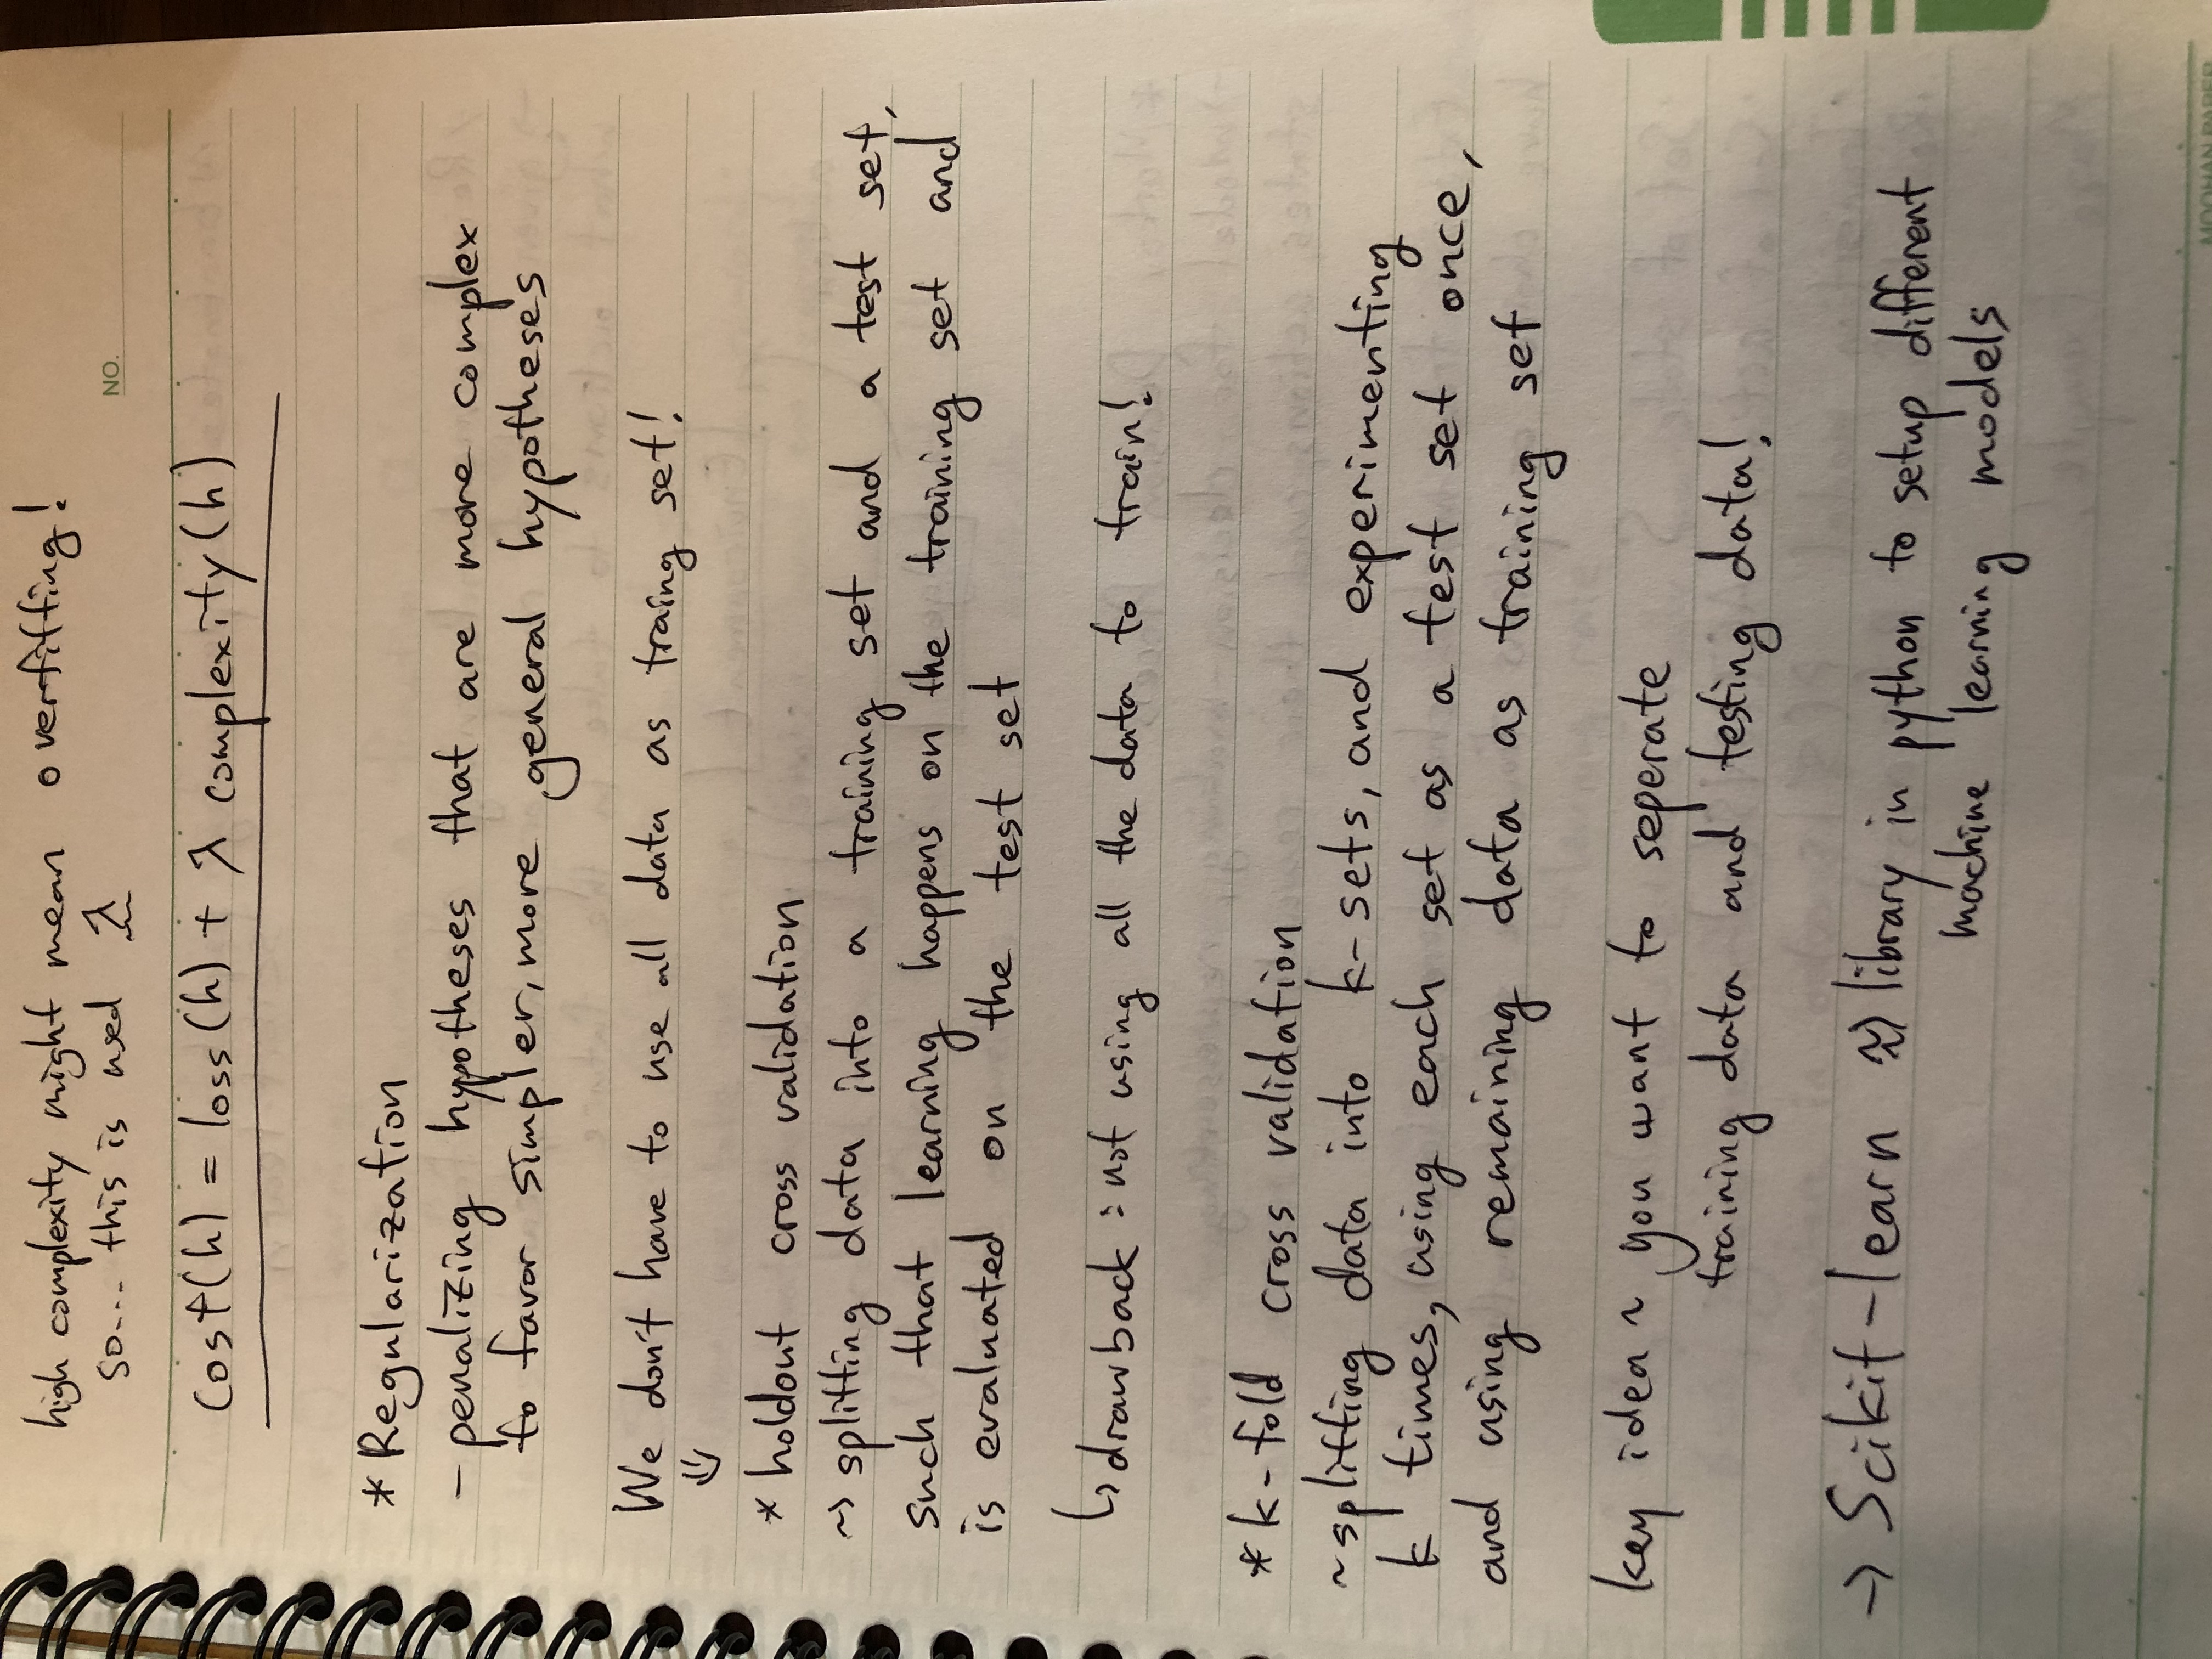 high complexity might mean overfitting!
so... this is used λ
NO.
cost(h) = loss(h) + λ complexity(h)
* Regularization
- penalizing hypotheses that are more complex
to favor simpler, more general hypotheses
We don't have to use all data as traing set!
⇓
* holdout cross validation
~> splitting data into a training set and a test set,
such that learning happens on the training set and
is evaluated on the test set
↳ drawback : not using all the data to train!
* k-fold cross validation
~ splitting data into k-sets, and experimenting
k times, using each set as a test set once,
and using remaining data as training set
key idea ~ you want to seperate
training data and testing data!
→ Scikit-learn ≈> library in python to setup different
machine learning models
MOOHAN PAPER